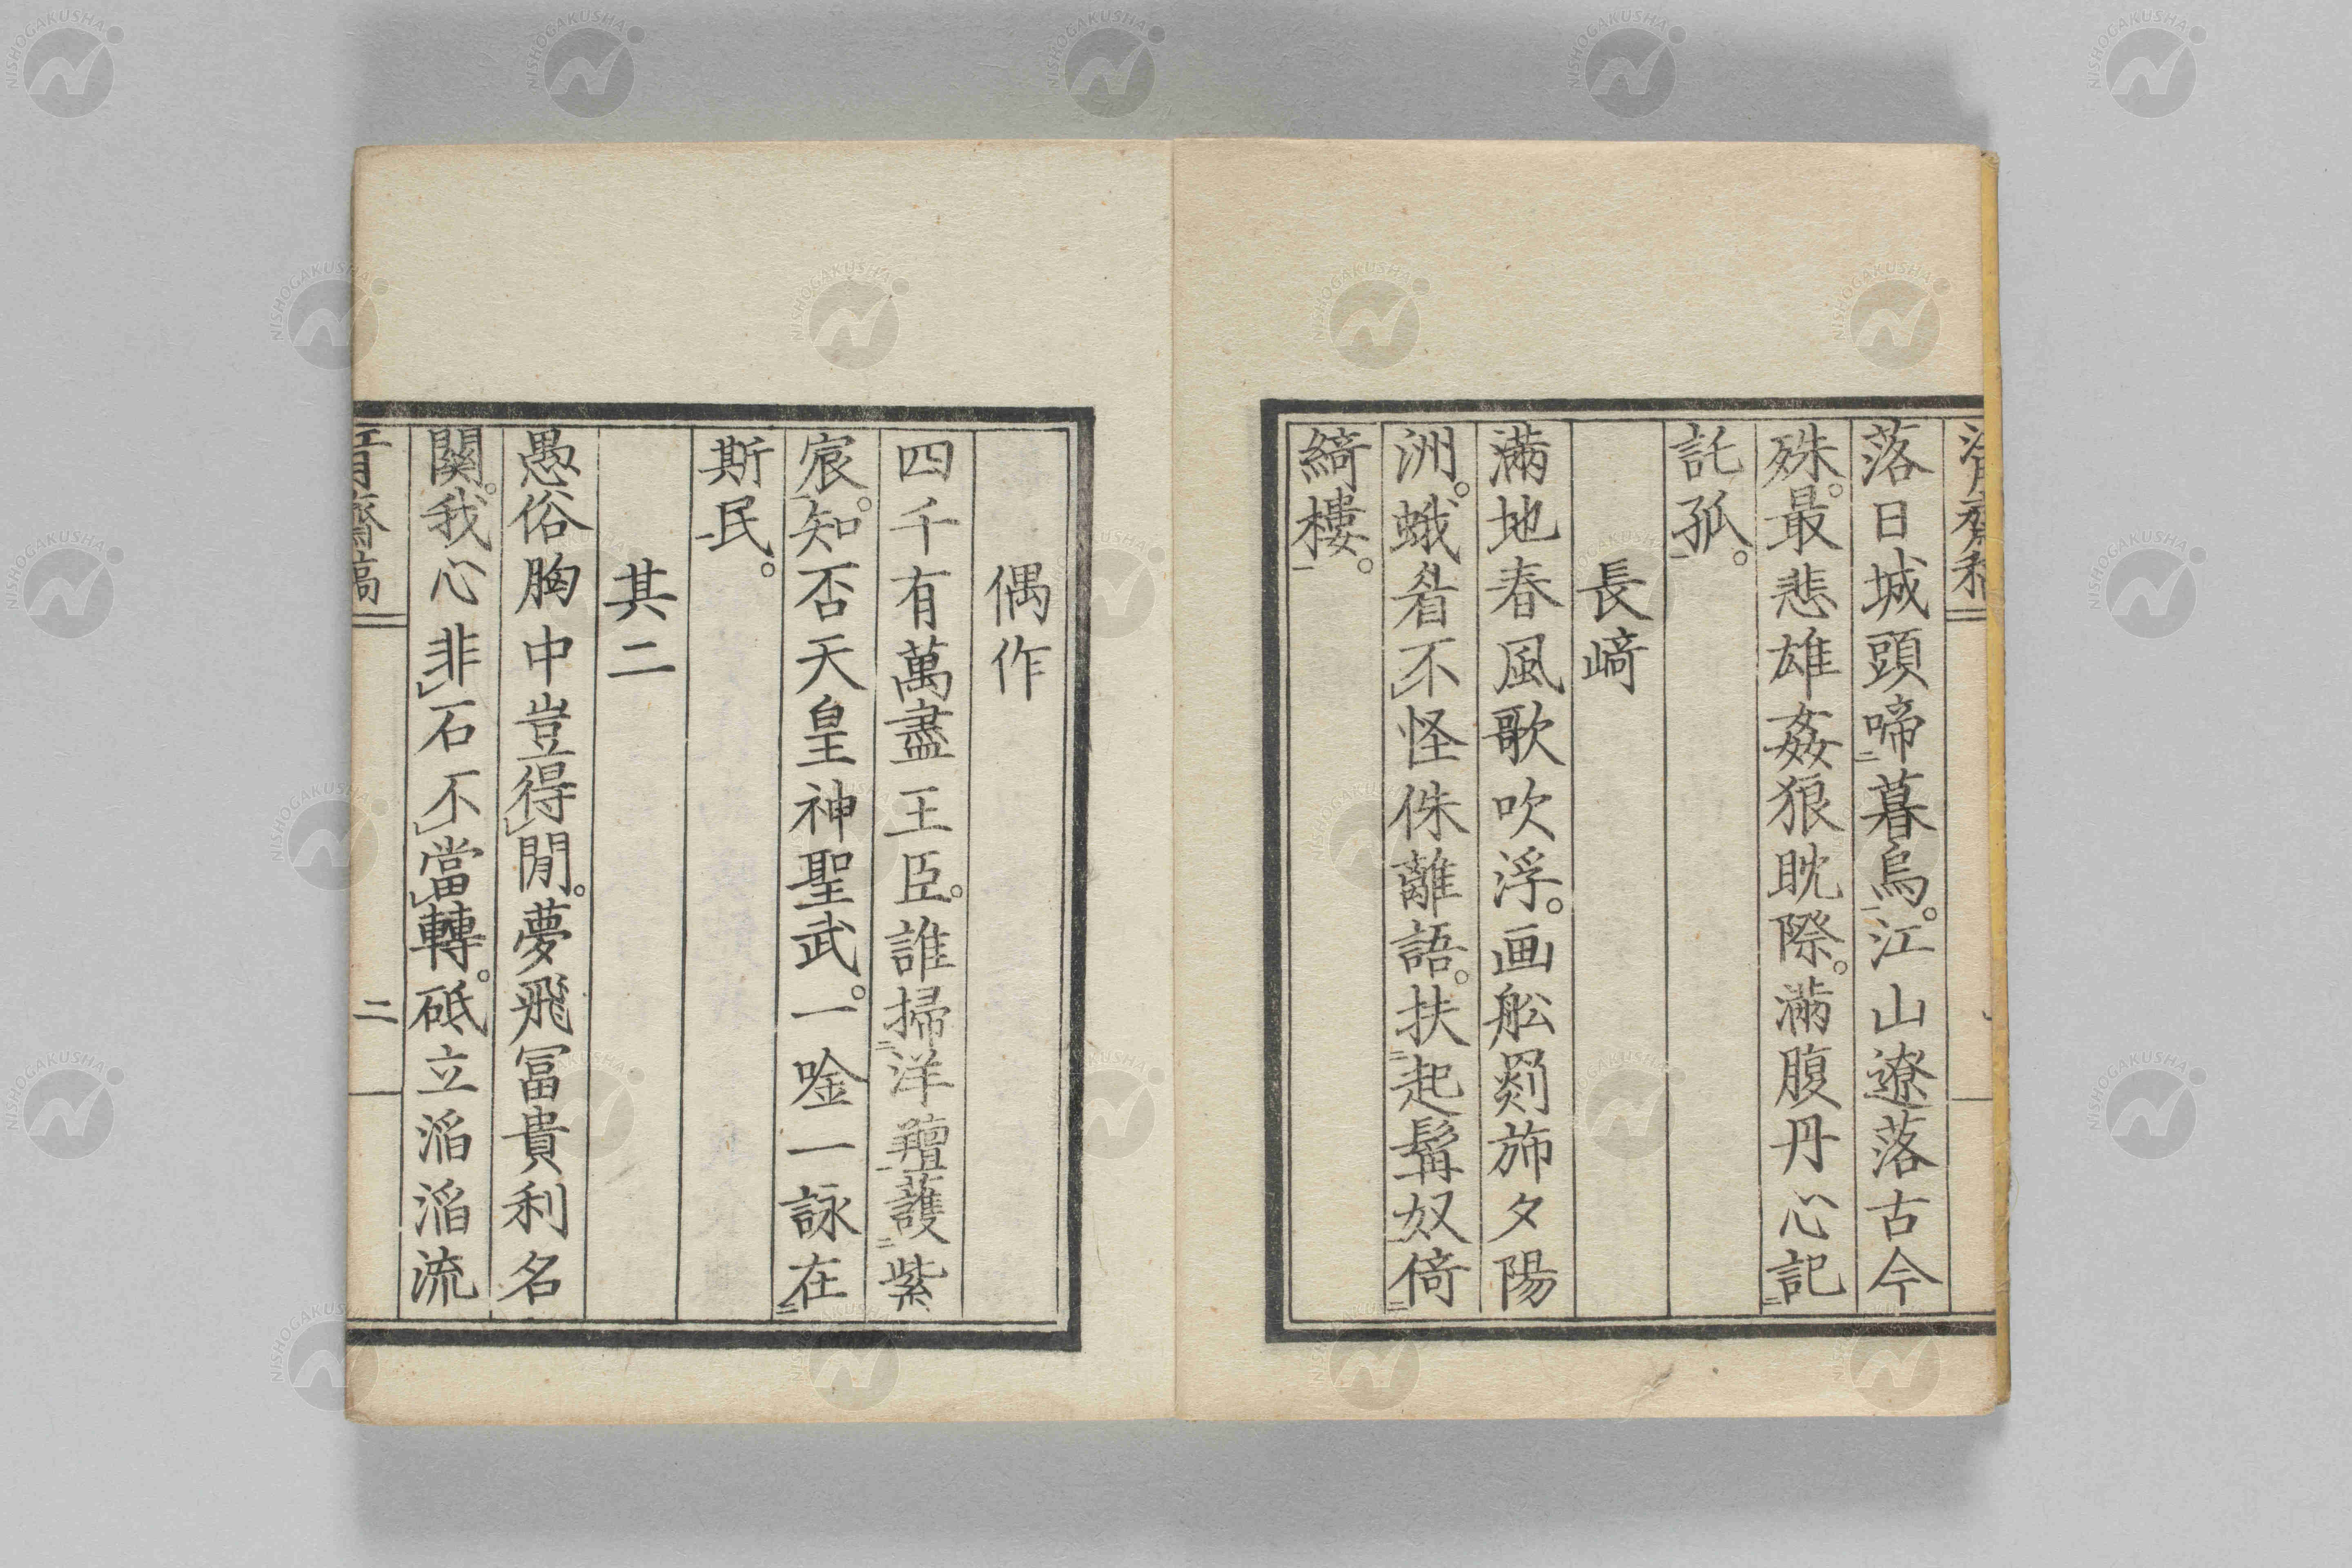 落日城頭啼暮烏。江山遼落古今
殊。最悲雄姦狼眈際。滿腹丹心記
託孤。
長﨑
滿地春風歌吹浮。画舩剡斾夕陽
洲。蛾眉不怪侏離語。扶起髯奴倚
綺樓。
偶作
四千有萬盡王臣。誰掃洋羶護紫
宸。知否天皇神聖武。一唫一詠在
斯民。
其二
愚俗胸中豈得閒。夢飛冨貴利名
關。我心非石不當轉。砥立滔滔流
齋稿
二
NISHOGAKUSHA